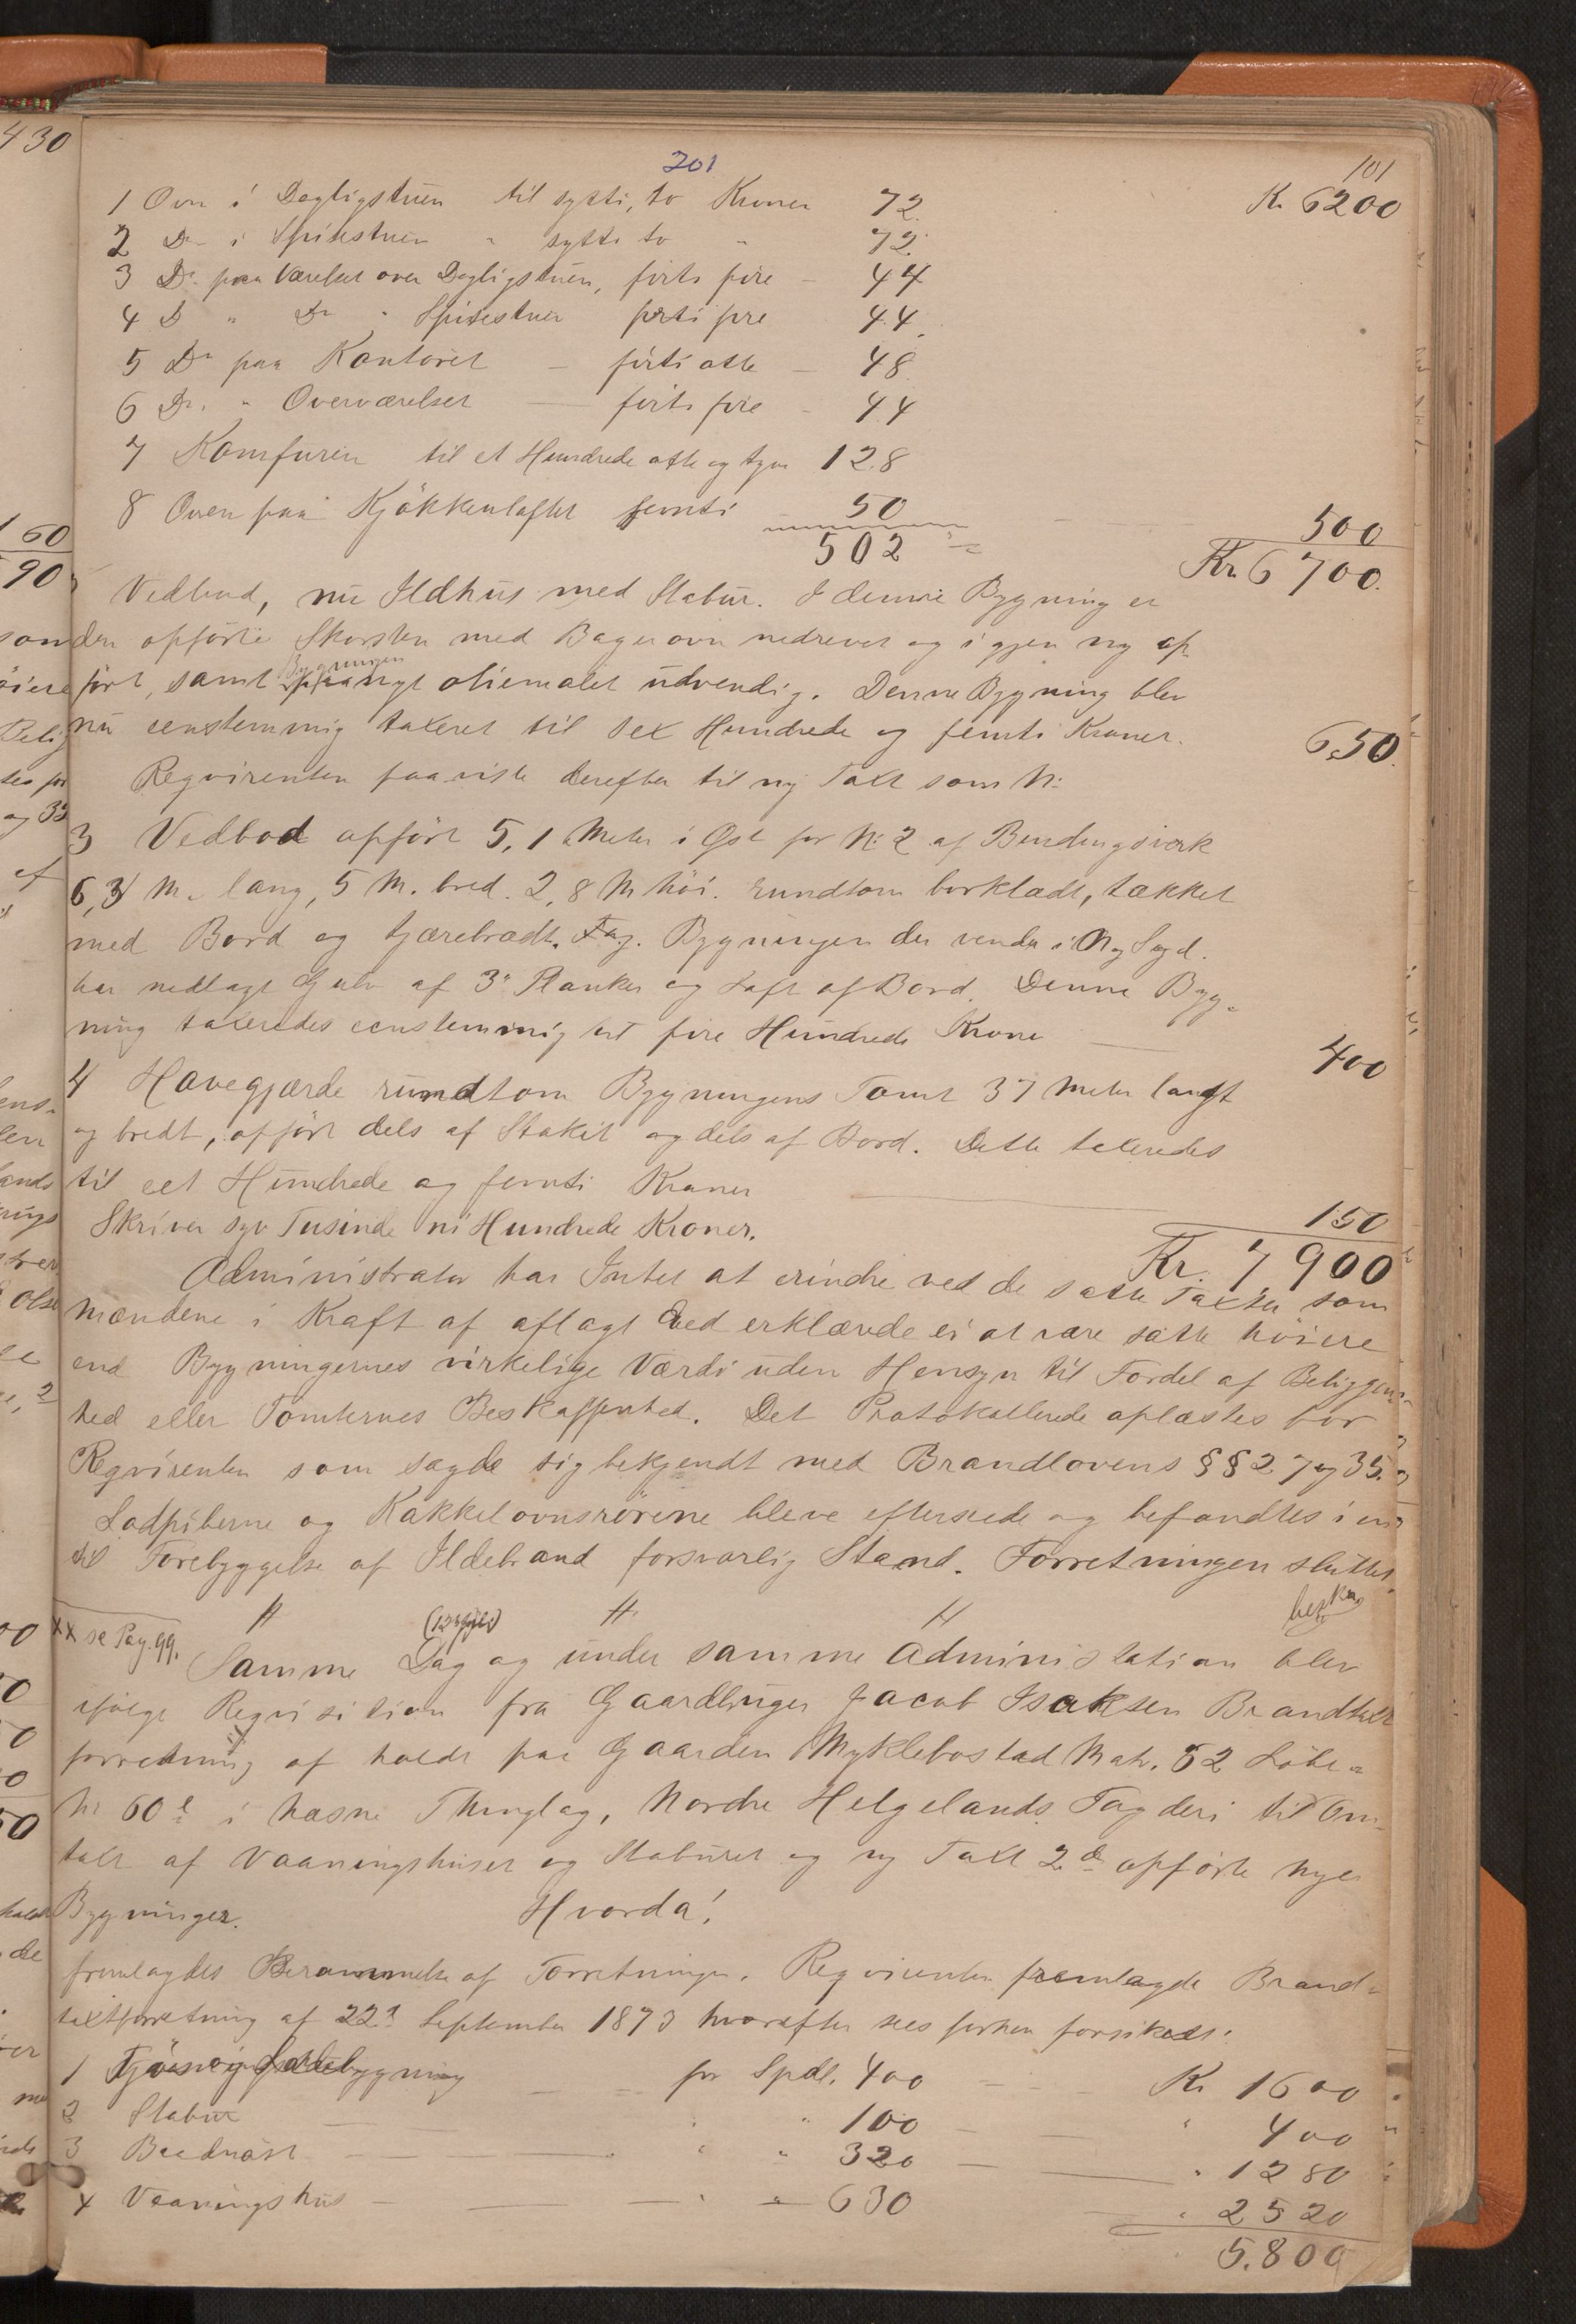 201
101
Kr 6200
1 Ovn i Dagligstuen til sytti, to Kroner 72.
2 Do i Spisestuen " sytti to " 72.
3 Do paa Værelset over Dagligstuen, firti fire – 44
4 D " Do " Spisestuen firti fire 44.
5 Do paa Kontoret – firti otte – 48
6 Do. " Overværelset – firti fire – 44
7 Komfuren til et Hundrede otte og tyve 128
8 Ovnen paa Kjökkenloftet femti 50
502
500
Kr. 6 700.
Vedbod, nu Ildhus med Stabur. I denne Bygning er
den opförte Skorsten med Bagerovn nedrevet og i gjen ny op-
fört, samt Bygningen paanyt oliemalet udvendig. Denne Bygning blev
nu eenstemmig taxeret til sex Hundrede og femti Kroner.
650.
Reqvirenten paaviste derefter til ny Taxt som N:
3 Vedbod opfört 5,1 Meter i Øst for N: 2 af Bindingsværk
6,3 M. lang, 5 M. bred. 2,8 M höi. rundtom bordklædt, tækket
med Bord og tjærebrædt. Tag. Bygningen der vender i N og Syd.
har nedlagt Gulv af 3" Planker og Loft af Bord. Denne Byg-
ning taxeredes eenstemmig til fire Hundrede Krone
400
4 Havegjærde rundtom Bygningens Tomt 37 Meter langt
og bredt, opfört dels af Stakit og dels af Bord. Dette taxeredes
til eet Hundrede og femti Kroner
150
Skriver syv Tusinde ni Hundrede Kroner.
Kr. 7,900
Administrator har Intet at erindre ved de satte Taxter som
Mændene i Kraft af aflagt Eed erklærede ei at være satte höiere
end Bygningernes virkelige Værdi uden Hensyn til Fordel af Beliggen-
hed eller Tomternes Beskaffenhed. Det Protokollerede oplæstes for
Reqvirenten som sagde sig bekjendt med Brandlovens §§ 27 og 35.
Ladpiberne og Kakkelovnsrörene bleve efterseede og befandtes i en
til Forebyggelse af Ildebrand forsvarlig Stand. Forretningen sluttet.
xx se Pag. 99.
Samme Dag og under samme Administration blev
ifölge Reqvisition fra Gaardbruger Jacob Isaksen Brandtaxt
forretning af holdt paa Gaarden Myklebostad Matr. 52 Löbe-
Nr 60 i Næsne Thinglag, Nordre Helgelands Fogderi til Om-
taxt af Vaaningshuset og Staburet og ny Taxt 2de opförte nye
Bygninger.
Hvorda!
fremlagdes Berammelse af Forretningen. Reqvirenten fremlagde Brand-
taxtforretning af 22d September 1873 hvorefter sees forhen forsikret:
1 Fjös og Ladebygning – for Spdl. 400 – Kr 1600
2 Stabur – " " 100 – " 400
3 Baadnöst – " " 320 – " 1280
4 Vaaningshus – " " 630 " 2520
5.800